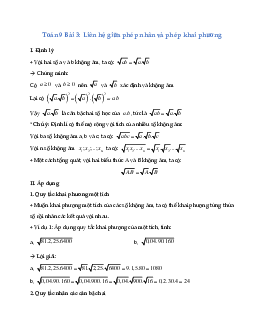 Toán 9 Bài 3: Liên hệ giữa phép nhân và phép khai phương
I. Định lý
+ Với hai số a và b không âm, ta có: √ab = √a√b
→ Chứng minh:
Có a ≥ 0 và b ≥ 0 nên √a và √b xác định và không âm
Lại có (√a√b)² = (√a)².(√b)² = a.b
Vậy √a√b là căn bậc hai số học của a.b, tức là √ab = √a√b
* Chú ý: Định lí có thể mở rộng với tích của nhiều số không âm:
Với ba số không âm a, b, c ta có: √abc = √a√b√c
Với n số không âm x₁; x₂;...xₙ ta có: √x₁x₂...xₙ = √x₁√x₂...√xₙ
+ Một cách tổng quát, với hai biểu thức A và B không âm, ta có:
√AB = √A√B
II. Áp dụng
1. Quy tắc khai phương một tích
+ Muốn khai phương một tích của các số không âm, ta có thể khai phương từng thừa
số rồi nhân các kết quả với nhau.
+ Ví dụ 1: Áp dụng quy tắc khai phương của một tích, tính:
a, √81.2,25.6400 b, √0,04.90.160
→ Lời giải:
a, √81.2,25.6400 = √81.√2,25.√6400 = 9.1,5.80 = 1080
b, √0,04.90.160 = √0,04.900.16 = √0,04.√900.√16 = 0,2.30.4 = 24
2. Quy tắc nhân các căn bậc hai